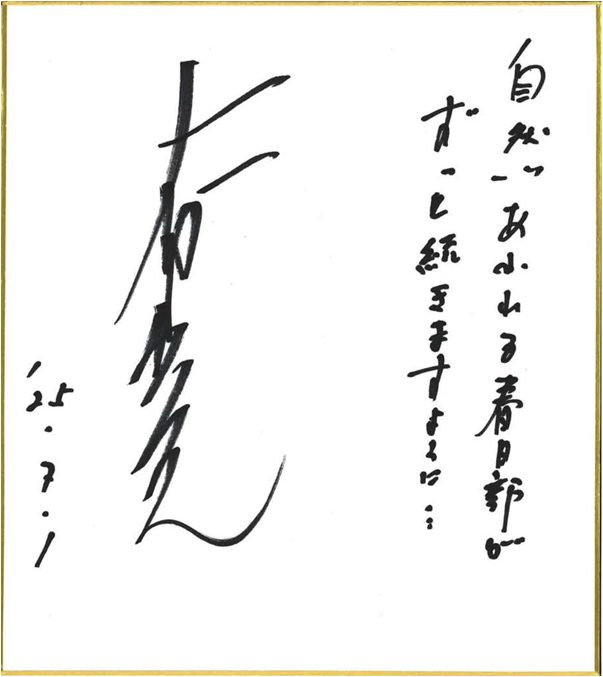 自然があふれる春日部が
ずっと続きますように…
'25.7.1